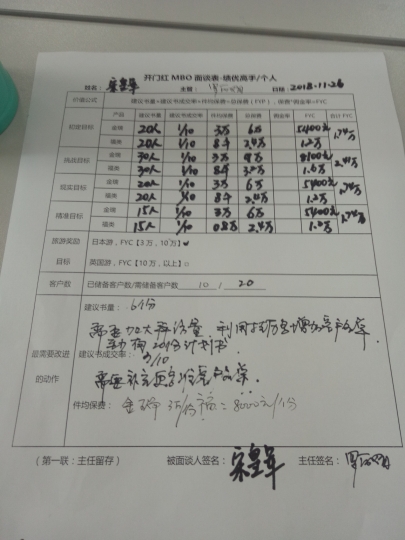 开门红 MBO 面谈表-绩优高手/个人
姓名: 宋皇军 主管: 日期: 2018.11.26
价值公式 建议书量×建议书成交率×件均保费=总保费(FYP),保费*佣金率=FYC
产品 建议书量 建议书成交率 件均保费 总保费 佣金率 FYC 合计 FYC
初定目标 金瑞 20人 1/10 3万 6万 5400元 1.74万
福类 20人 1/10 8千 1.2万
挑战目标 金瑞 30人 1/10 3万 9万 8100元
福类 30人 1/10 8千 1.6万
现实目标 金瑞 20人 1/10 3万 6万 5400元 1.74万
福类 20人 8千 1.2万
精准目标 金瑞 15人 1/10 3万 6万 5400元 1.74万
福类 15人 1/10 0.8万 2.4万
旅游奖励目标 日本游,FYC【3 万,10 万】
英国游,FYC【10 万,以上】
客户数 已储备客户数/需储备客户数 10 / 20
最需要改进的动作
建议书量: 6份
需要加大
建议书成交率:
2/10
需要
件均保费: 金瑞 3万/份 福=8000元/份
(第一联:主任留存) 被面谈人签名: 宋皇军 主任签名: